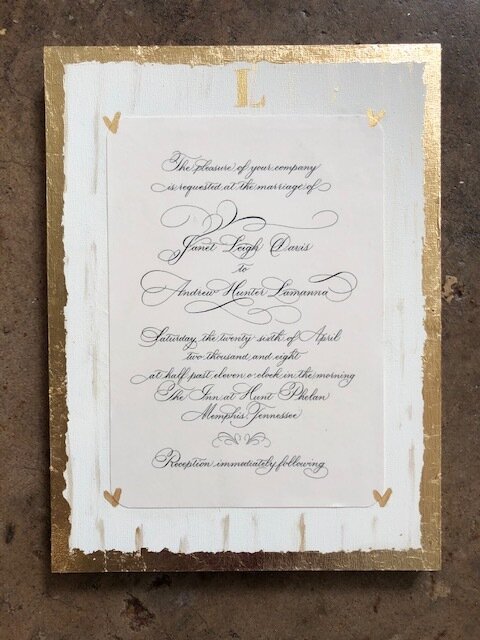 L
The pleasure of your company
is requested at the marriage of
Janet Leigh Davis
to
Andrew Hunter Lamanna
Saturday, the twenty sixth of April
two thousand and eight
at half past eleven o'clock in the morning
The Inn at Hunt Phelan
Memphis, Tennessee
Reception immediately following